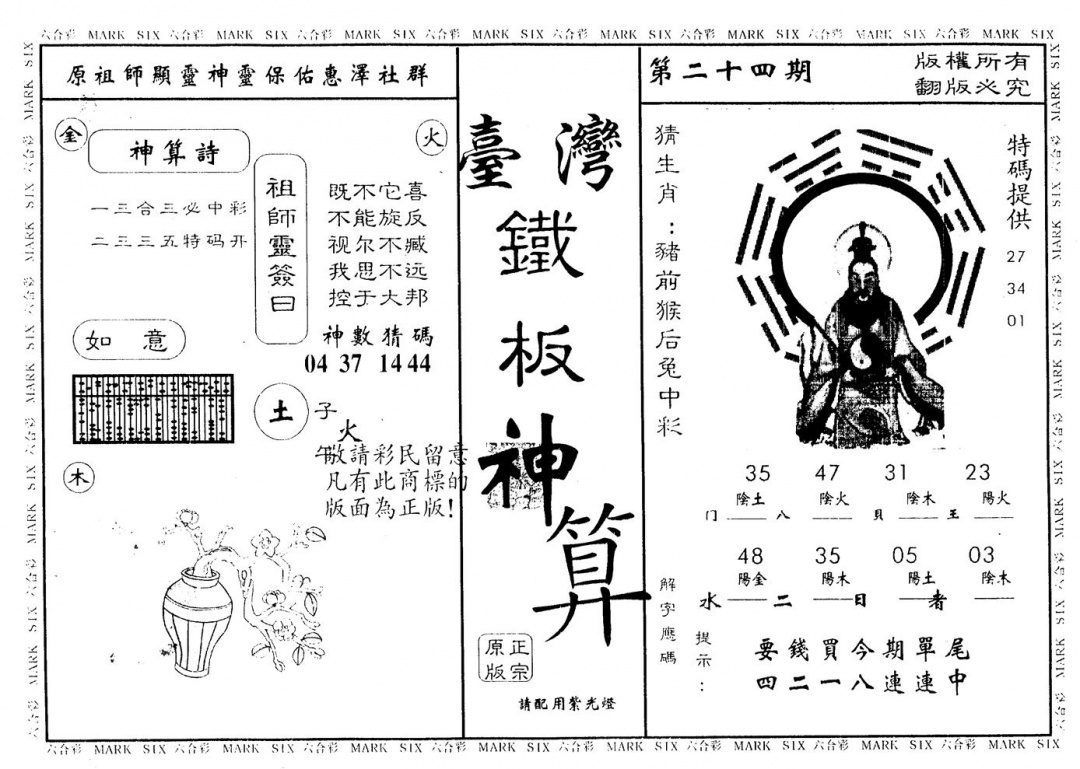 六合彩 MARK SIX 六合彩 MARK SIX 六合彩 MARK SIX 六合彩 MARK SIX 六合彩 MARK SIX 六合彩 MARK SIX 六合彩 MARK SIX 六合彩 MARK SIX
原祖師顯靈神靈保佑惠澤社群
金
神算詩
火
一三合三必中彩
二三三五特码开
祖師靈簽曰
既不它喜
不能旋反
视尔不臧
我思不远
控于大邦
如意
神數猜碼
04 37 14 44
土
子
火
午
敬請彩民留意
凡有此商標的
版面為正版!
木
臺灣
鐵
板
神
算
正宗
原版
請配用紫光燈
第二十四期
版權所有
翻版必究
猜生肖：豬前猴后兔中彩
特碼提供
27
34
01
35 47 31 23
陰土 陰火 陰木 陽火
门 八 貝 王
48 35 05 03
陽金 陽木 陽土 陰木
水 二 日 者
解字應碼
提示：
要錢買今期單尾
四二一八連連中
六合彩 MARK SIX 六合彩 MARK SIX 六合彩 MARK SIX 六合彩 MARK SIX 六合彩 MARK SIX 六合彩 MARK SIX 六合彩 MARK SIX 六合彩 MARK SIX